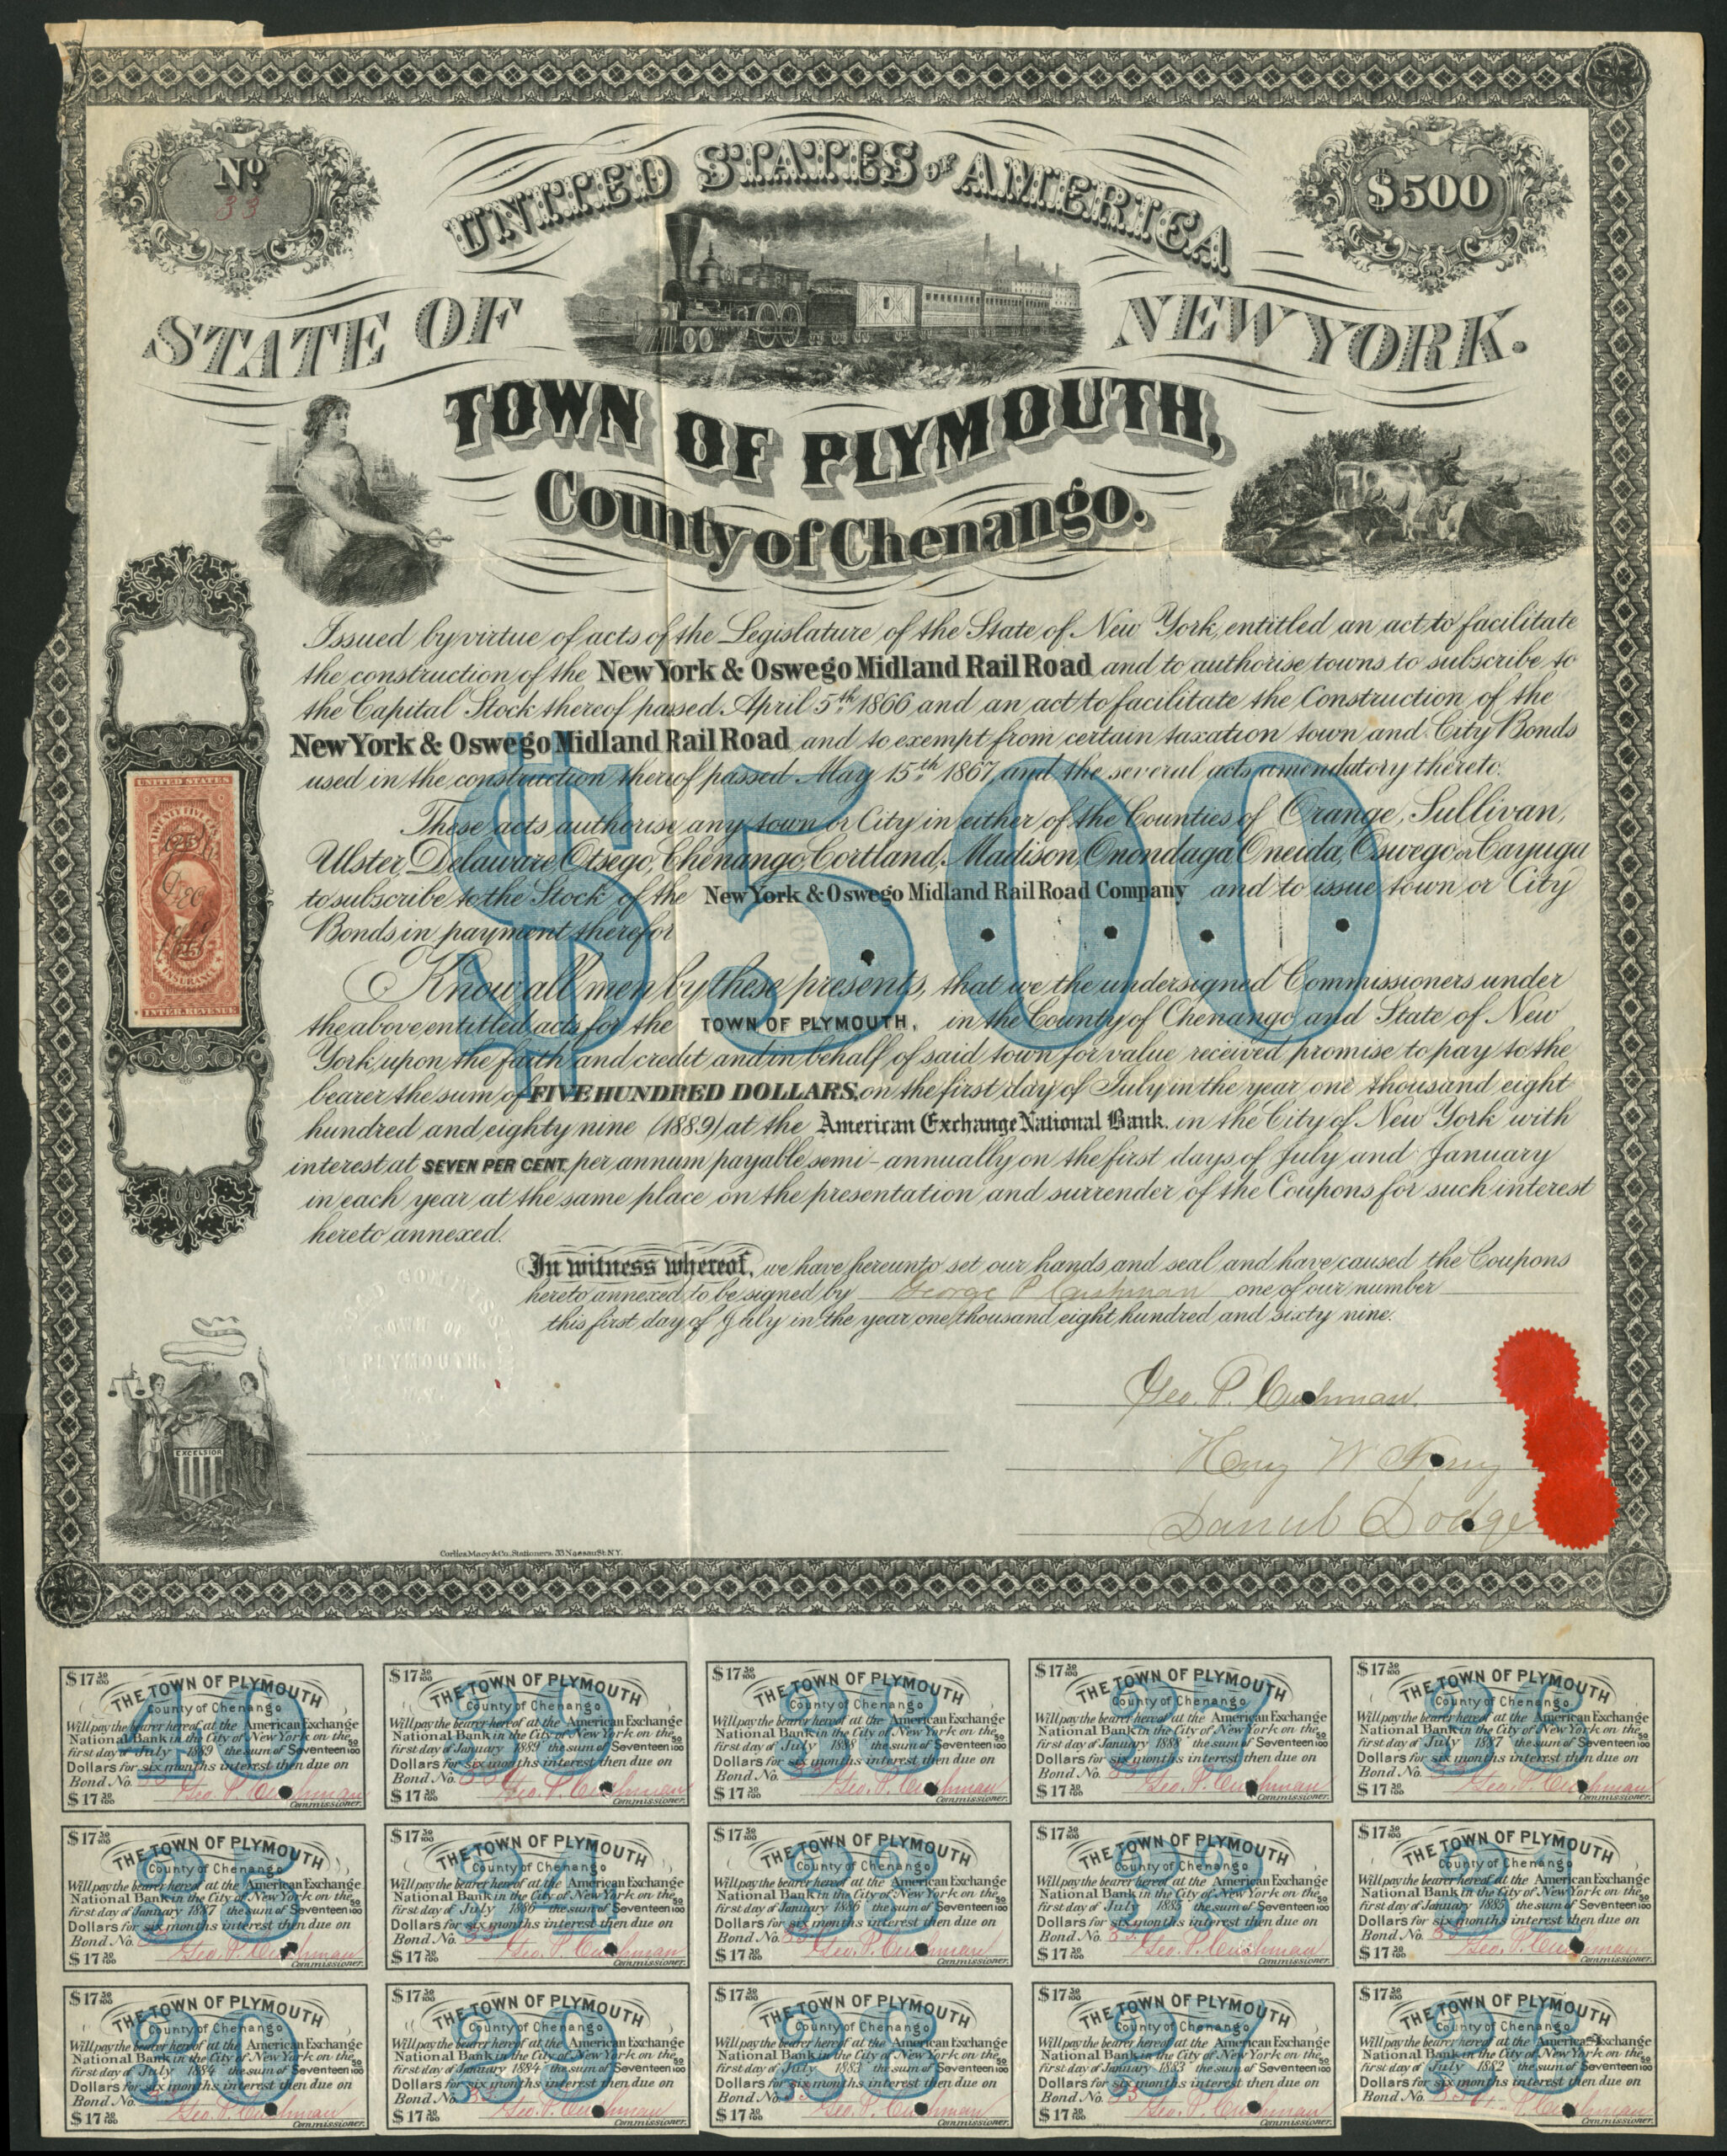 No.
33
$500
UNITED STATES OF AMERICA
STATE OF NEW YORK.
TOWN OF PLYMOUTH,
County of Chenango.
Issued by virtue of acts of the Legislature of the State of New York, entitled an act to facilitate
the construction of the New York & Oswego Midland Rail Road and to authorise towns to subscribe to
the Capital Stock thereof passed April 5th 1866 and an act to facilitate the Construction of the
New York & Oswego Midland Rail Road and to exempt from certain taxation town and City Bonds
used in the construction thereof passed May 15th 1867, and the several acts amendatory thereto.
$500
These acts authorise any town or City in either of the Counties of Orange, Sullivan,
Ulster, Delaware, Otsego, Chenango, Cortland, Madison, Onondaga, Oneida, Oswego or Cayuga
to subscribe to the Stock of the New York & Oswego Midland Rail Road Company and to issue town or City
Bonds in payment therefor
Know all men by these presents, that we the undersigned Commissioners under
the above entitled acts for the TOWN OF PLYMOUTH, in the County of Chenango and State of New
York, upon the faith and credit and in behalf of said town for value received promise to pay to the
bearer the sum of FIVE HUNDRED DOLLARS, on the first day of July in the year one thousand eight
hundred and eighty nine (1889) at the American Exchange National Bank. in the City of New York with
interest at SEVEN PER CENT. per annum payable semi-annually on the first days of July and January
in each year at the same place on the presentation and surrender of the Coupons for such interest
hereto annexed.
UNITED STATES
TWENTY FIVE CTS
25
Dec
25
INSURANCE
INTER. REVENUE
In witness whereof, we have hereunto set our hands and seal and have caused the Coupons
hereto annexed to be signed by George P Cushman one of our number
this first day of July in the year one thousand eight hundred and sixty nine.
TOWN OF
PLYMOUTH.
N.Y.
Geo. P. Cushman.
Daniel Dodge
EXCELSIOR
Corlies Macy & Co. Stationers. 33 Nassau St. N.Y.
$17 50/100
THE TOWN OF PLYMOUTH
County of Chenango
40
Will pay the bearer hereof at the American Exchange
National Bank in the City of New York on the
first day of July 1889 the sum of Seventeen 50/100
Dollars for six months interest then due on
Bond No. 33
$17 50/100 Geo. P. Cushman
Commissioner.
$17 50/100
THE TOWN OF PLYMOUTH
County of Chenango
39
Will pay the bearer hereof at the American Exchange
National Bank in the City of New York on the
first day of January 1889 the sum of Seventeen 50/100
Dollars for six months interest then due on
Bond No. 33
$17 50/100 Geo. P. Cushman
Commissioner.
$17 50/100
THE TOWN OF PLYMOUTH
County of Chenango
38
Will pay the bearer hereof at the American Exchange
National Bank in the City of New York on the
first day of July 1888 the sum of Seventeen 50/100
Dollars for six months interest then due on
Bond No. 33
$17 50/100 Geo. P. Cushman
Commissioner.
$17 50/100
THE TOWN OF PLYMOUTH
County of Chenango
37
Will pay the bearer hereof at the American Exchange
National Bank in the City of New York on the
first day of January 1888 the sum of Seventeen 50/100
Dollars for six months interest then due on
Bond No. 33
$17 50/100 Geo. P. Cushman
Commissioner.
$17 50/100
THE TOWN OF PLYMOUTH
County of Chenango
36
Will pay the bearer hereof at the American Exchange
National Bank in the City of New York on the
first day of July 1887 the sum of Seventeen 50/100
Dollars for six months interest then due on
Bond No. 33
$17 50/100 Geo. P. Cushman
Commissioner.
$17 50/100
THE TOWN OF PLYMOUTH
County of Chenango
35
Will pay the bearer hereof at the American Exchange
National Bank in the City of New York on the
first day of January 1887 the sum of Seventeen 50/100
Dollars for six months interest then due on
Bond No. 33
$17 50/100 Geo. P. Cushman
Commissioner.
$17 50/100
THE TOWN OF PLYMOUTH
County of Chenango
34
Will pay the bearer hereof at the American Exchange
National Bank in the City of New York on the
first day of July 1886 the sum of Seventeen 50/100
Dollars for six months interest then due on
Bond No. 33
$17 50/100 Geo. P. Cushman
Commissioner.
$17 50/100
THE TOWN OF PLYMOUTH
County of Chenango
33
Will pay the bearer hereof at the American Exchange
National Bank in the City of New York on the
first day of January 1886 the sum of Seventeen 50/100
Dollars for six months interest then due on
Bond No. 33
$17 50/100 Geo. P. Cushman
Commissioner.
$17 50/100
THE TOWN OF PLYMOUTH
County of Chenango
32
Will pay the bearer hereof at the American Exchange
National Bank in the City of New York on the
first day of July 1885 the sum of Seventeen 50/100
Dollars for six months interest then due on
Bond No. 33
$17 50/100 Geo. P. Cushman
Commissioner.
$17 50/100
THE TOWN OF PLYMOUTH
County of Chenango
31
Will pay the bearer hereof at the American Exchange
National Bank in the City of New York on the
first day of January 1885 the sum of Seventeen 50/100
Dollars for six months interest then due on
Bond No. 33
$17 50/100 Geo. P. Cushman
Commissioner.
$17 50/100
THE TOWN OF PLYMOUTH
County of Chenango
30
Will pay the bearer hereof at the American Exchange
National Bank in the City of New York on the
first day of July 1884 the sum of Seventeen 50/100
Dollars for six months interest then due on
Bond No. 33
$17 50/100 Geo. P. Cushman
Commissioner.
$17 50/100
THE TOWN OF PLYMOUTH
County of Chenango
29
Will pay the bearer hereof at the American Exchange
National Bank in the City of New York on the
first day of January 1884 the sum of Seventeen 50/100
Dollars for six months interest then due on
Bond No. 33
$17 50/100 Geo. P. Cushman
Commissioner.
$17 50/100
THE TOWN OF PLYMOUTH
County of Chenango
28
Will pay the bearer hereof at the American Exchange
National Bank in the City of New York on the
first day of July 1883 the sum of Seventeen 50/100
Dollars for six months interest then due on
Bond No. 33
$17 50/100 Geo. P. Cushman
Commissioner.
$17 50/100
THE TOWN OF PLYMOUTH
County of Chenango
27
Will pay the bearer hereof at the American Exchange
National Bank in the City of New York on the
first day of January 1883 the sum of Seventeen 50/100
Dollars for six months interest then due on
Bond No. 33
$17 50/100 Geo. P. Cushman
Commissioner.
$17 50/100
THE TOWN OF PLYMOUTH
County of Chenango
26
Will pay the bearer hereof at the American Exchange
National Bank in the City of New York on the
first day of July 1882 the sum of Seventeen 50/100
Dollars for six months interest then due on
Bond No. 33 Geo. P. Cushman
Commissioner.